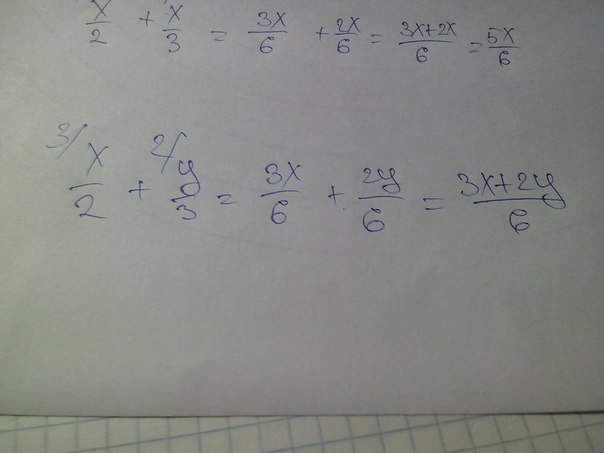 x/2 + x/3 = 3x/6 + 2x/6 = 3x+2x/6 = 5x/6
3/ x/2 + 2/ y/3 = 3x/6 + 2y/6 = 3x+2y/6